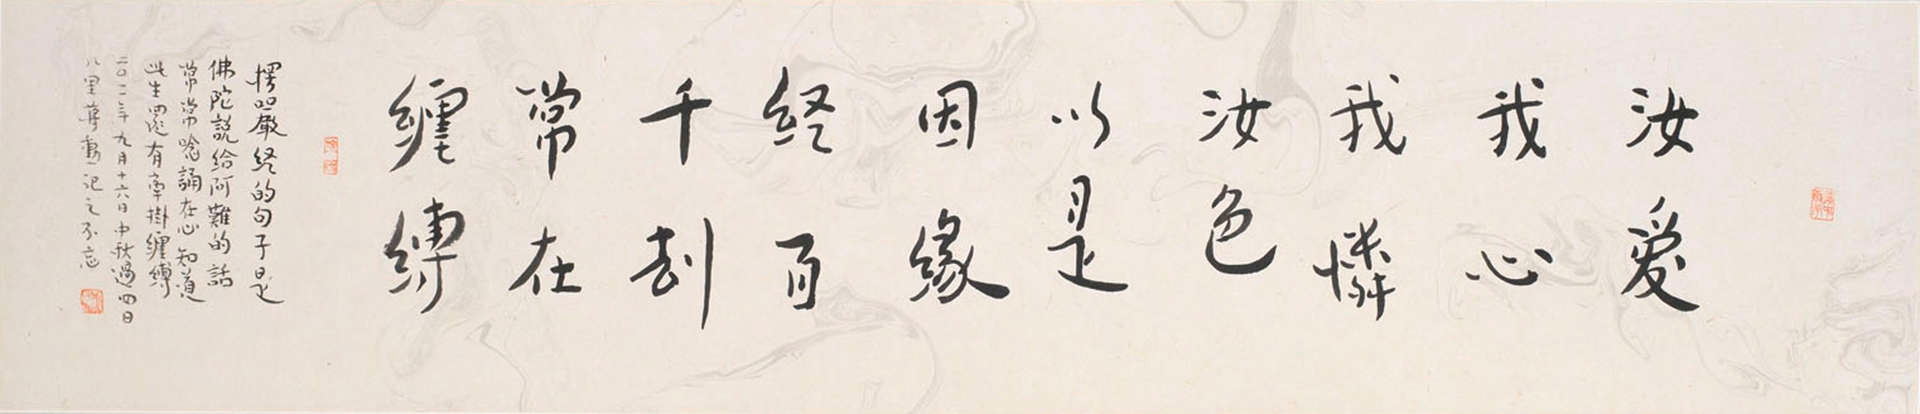 汝愛
我心
我憐
汝色
以是
因緣
経百
千劫
常在
纏縛
楞嚴経的句子是
佛陀說給阿難的話
常常唸誦在心知道
此生還有牽掛纏縛
二〇一一年九月十六日中秋過四日
八里蔣勳記之不忘